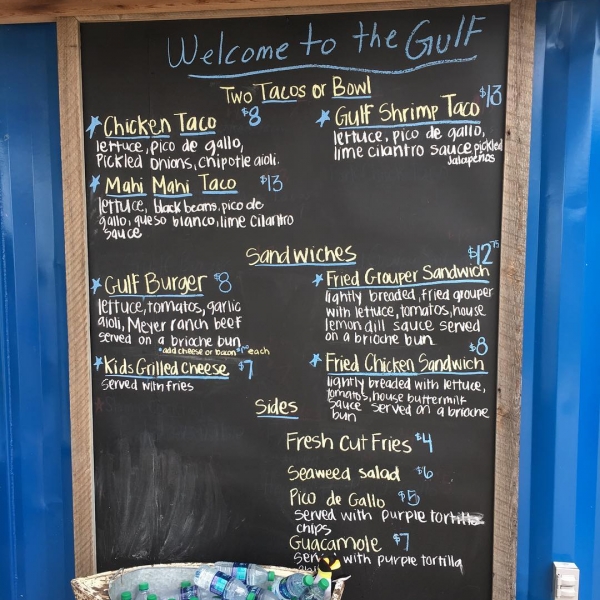 Welcome to the Gulf
Two Tacos or Bowl
Chicken Taco $8
lettuce, pico de gallo,
Pickled onions, chipotle aioli.
Gulf Shrimp Taco $13
lettuce, pico de gallo,
lime cilantro sauce pickled
Jalapeños
Mahi Mahi Taco $13
lettuce, black beans, pico de
gallo, queso blanco, lime cilantro
sauce
Sandwiches
Gulf Burger $8
lettuce, tomatos, garlic
aioli, Meyer ranch beef
served on a brioche bun
*add cheese or bacon each
Fried Grouper Sandwich $12.75
lightly breaded, fried grouper
with lettuce, tomatos, house
lemon dill sauce served
on a brioche bun
Kids Grilled Cheese $7
served with fries
Fried Chicken Sandwich $8
lightly breaded with lettuce,
tomatos, house buttermilk
sauce served on a brioche
bun
Sides
Fresh Cut Fries $4
Seaweed Salad $6
Pico de Gallo $5
served with purple tortilla
chips
Guacamole $7
with purple tortilla